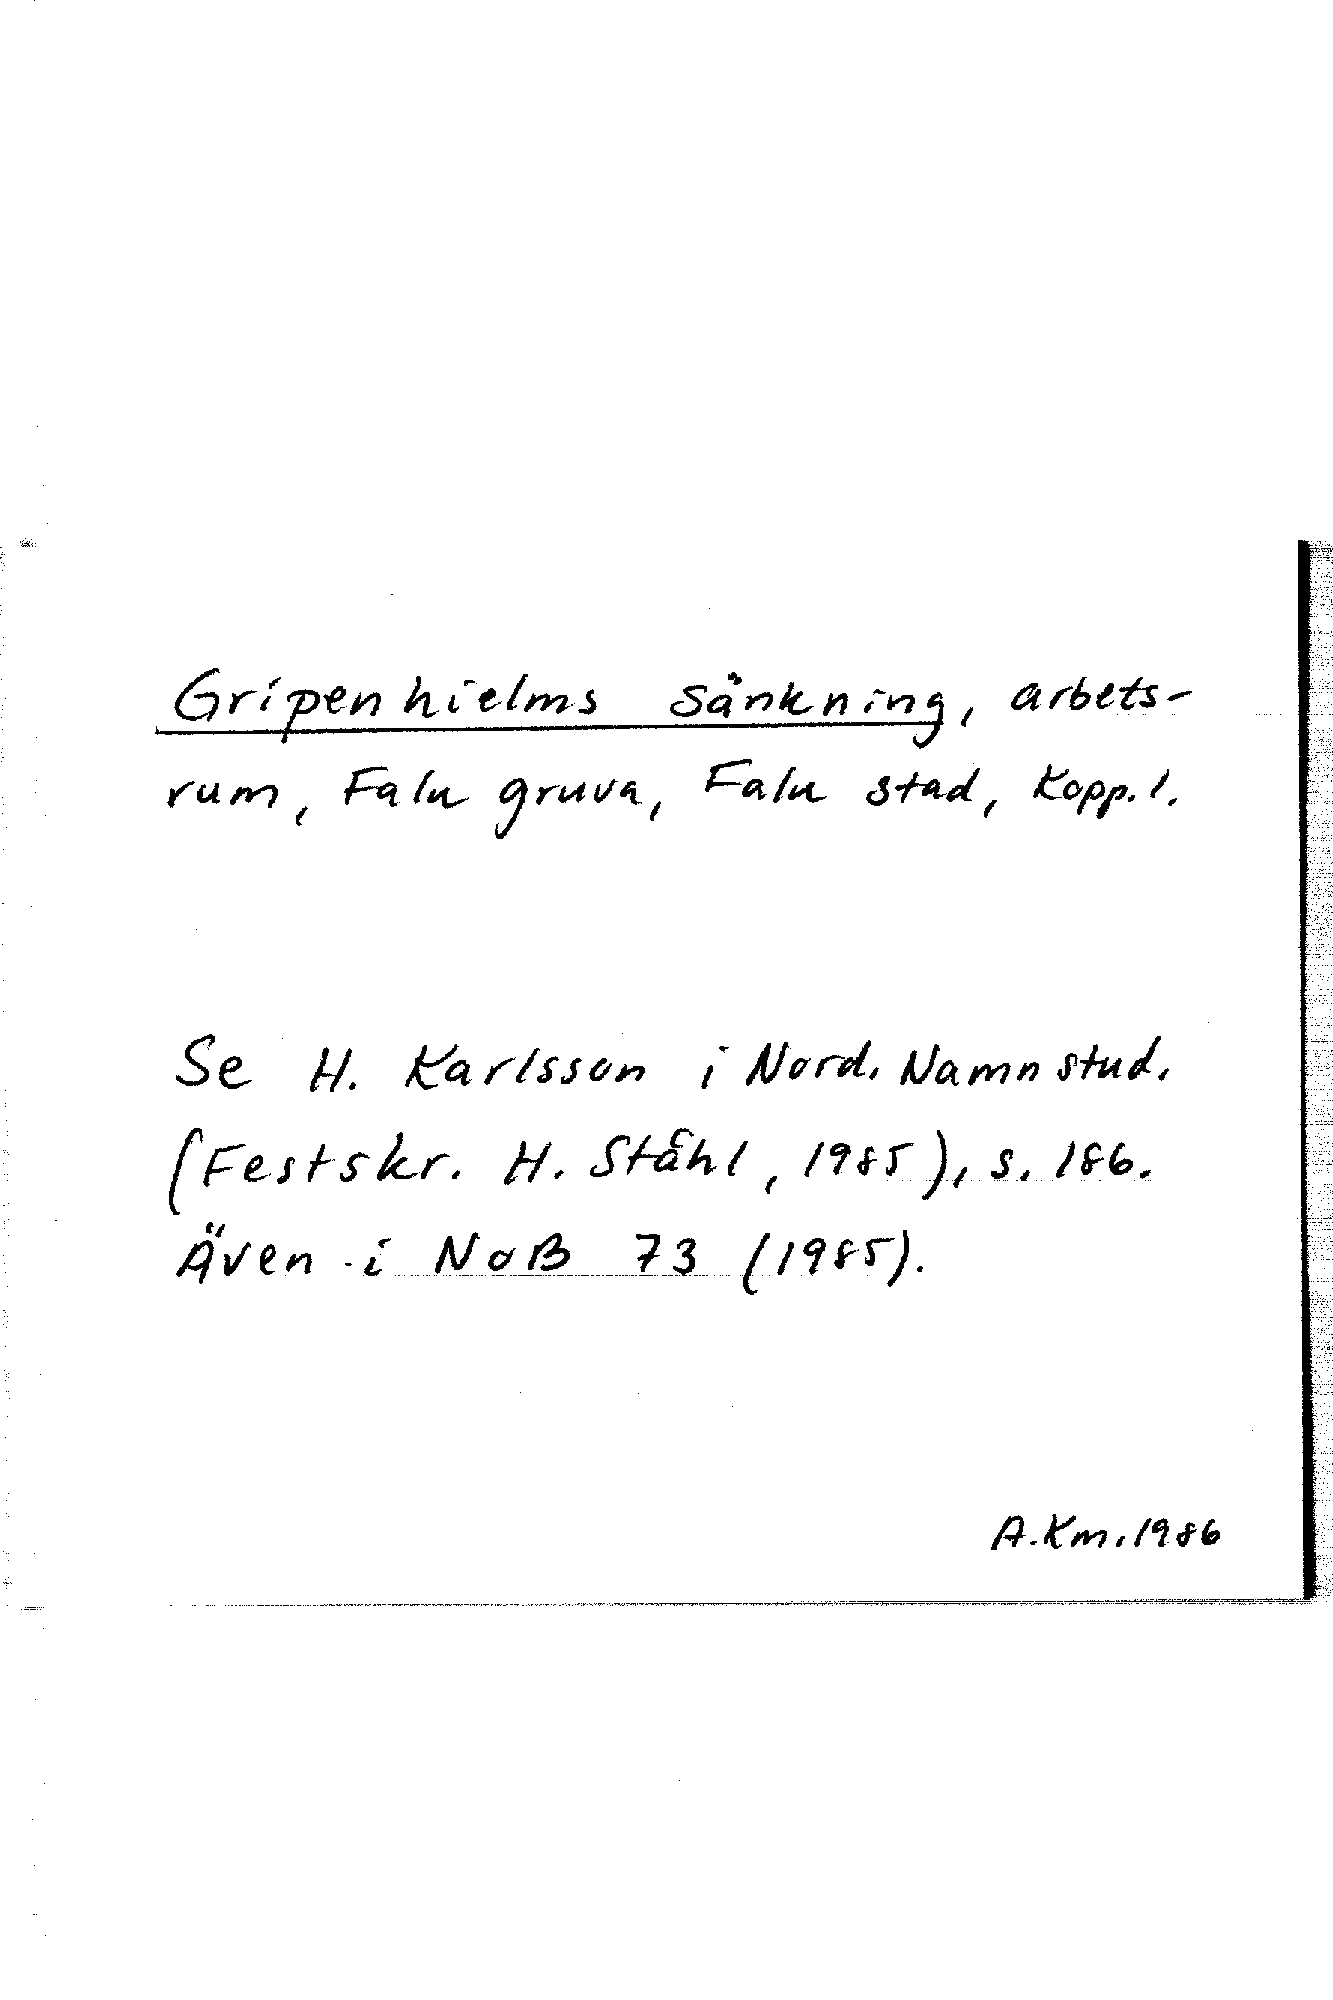 Gripenhielms sänkning, arbets-
rum, Falu gruva, Falu stad, Kopp. l.
Se H. Karlsson i Nord. Namnstud.
(Festskr. H. Ståhl, 1985), s. 186.
Även i NoB 73 (1985).
A.Km. 1986